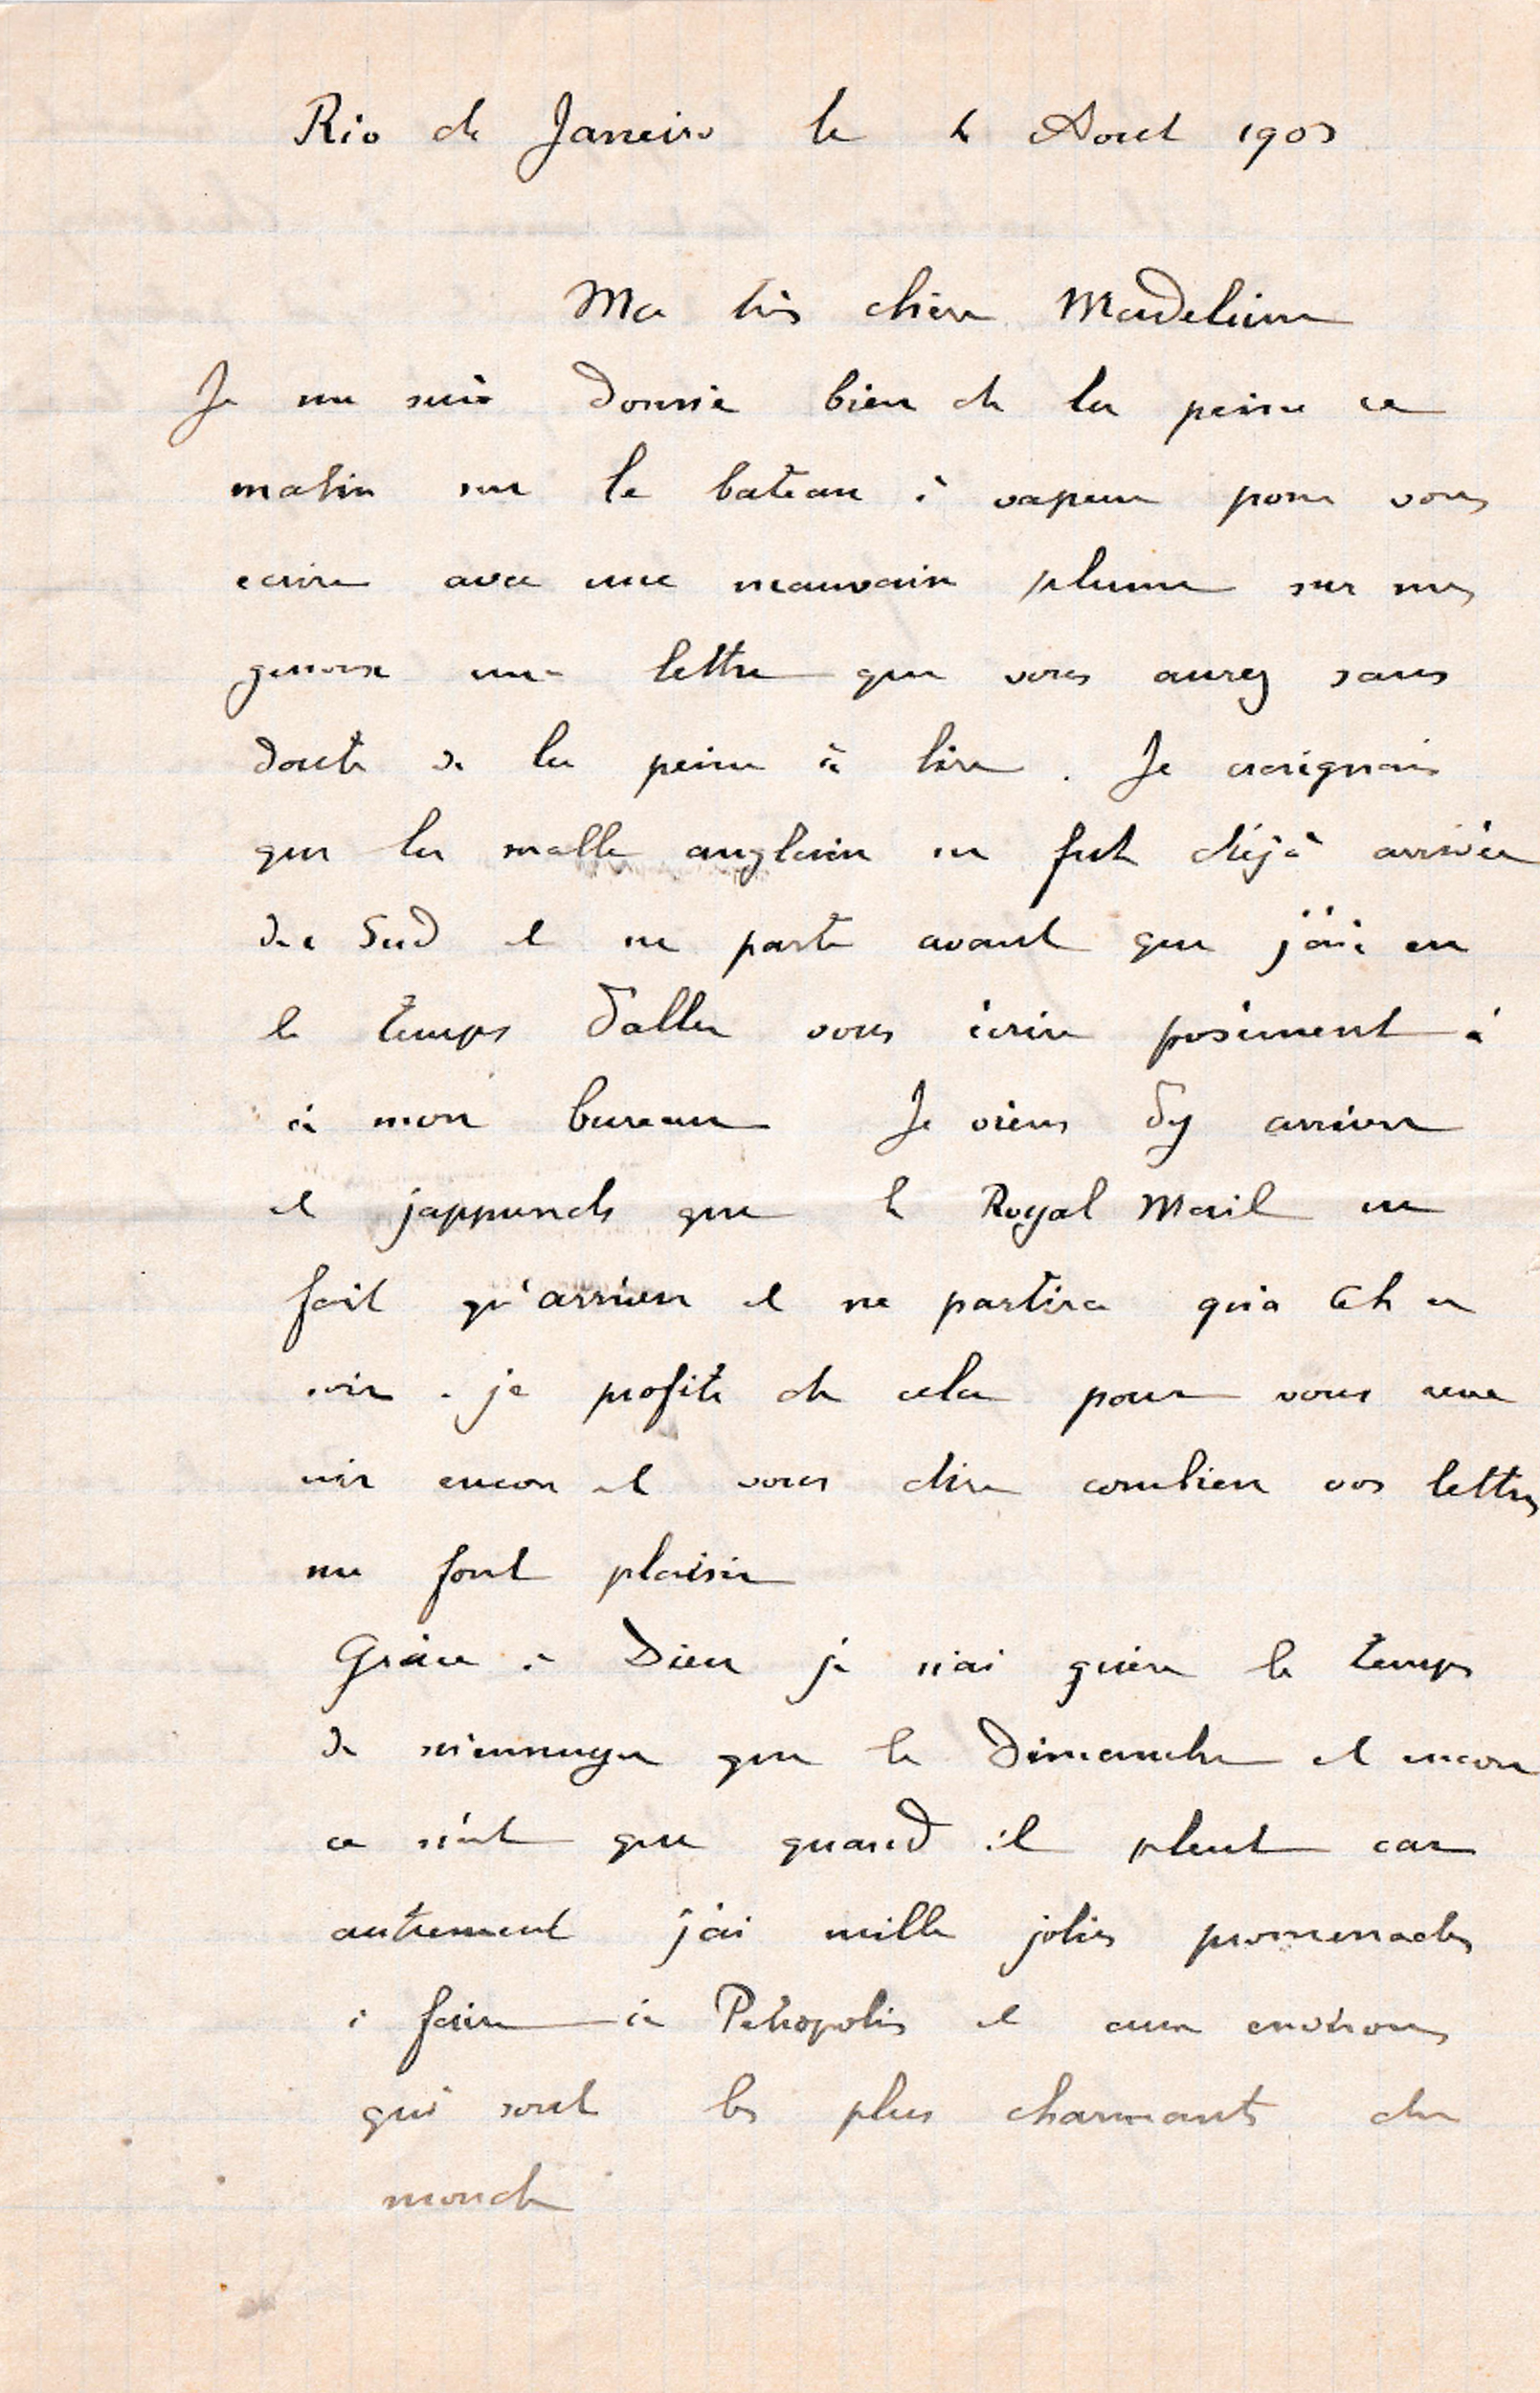 Rio de Janeiro le 4 Aout 1903
Ma très chère Madeleine
Je me suis donné bien de la peine ce
matin sur le bateau à vapeur pour vous
ecrire avec une mauvaise plume sur mes
genoux une lettre que vous aurez sans
doute de la peine à lire. Je craignais
que la malle anglaise ne fut déjà arrivée
du Sud et ne parte avant que j'aie eu
le temps d'aller vous écrire posément à
à mon bureau Je viens d'y arriver
et japprends que le Royal Mail ne
fait qu'arriver et ne partira qu'a 6h ce
soir. je profite de cela pour vous reve
nir encore et vous dire combien vos lettres
me font plaisir
Grâce à Dieu je n'ai guère le temps
de m'ennuyer que le Dimanche et encore
ce n'est que quand il pleut car
autrement j'ai mille jolies promenades
à faire à Petropolis et aux environs
qui sont les plus charmants du
monde